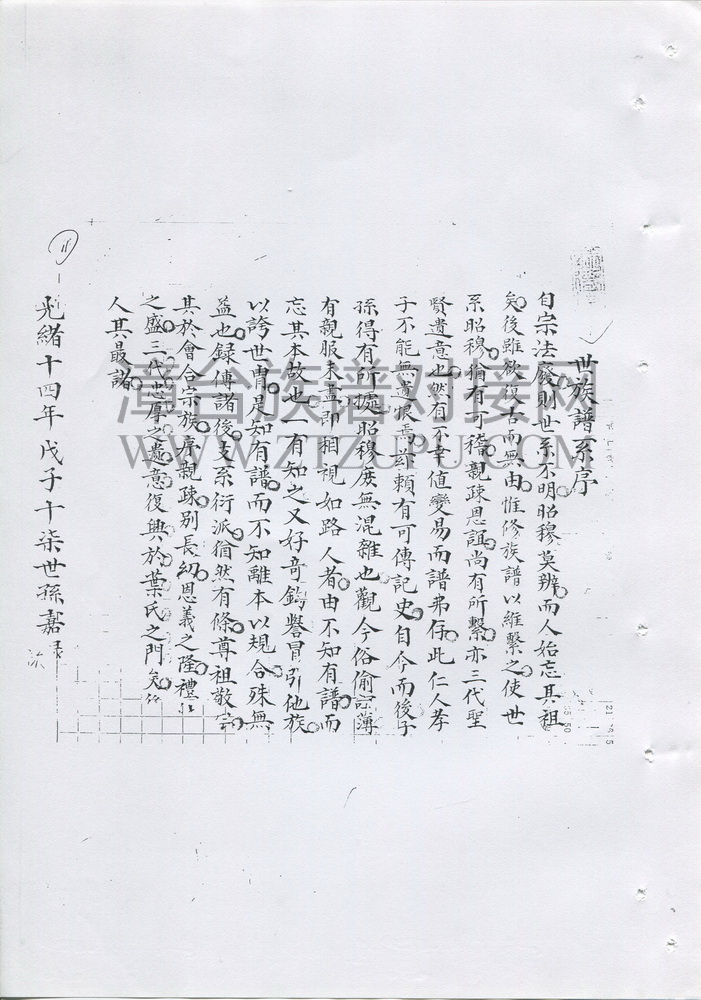 世族譜系序
自宗法廢則世系不明昭穆莫辨而人始忘其祖
矣後雖欲復古而無由惟修族譜以維繫之使世
系昭穆猶有可稽親疎恩誼尚有所繫亦三代聖
賢遺意也然有不幸值變易而譜弗存此仁人孝
子不能無遺恨焉茲賴有可傳記史自今而後子
孫得有所據昭穆庶無混雜也觀今俗偷宗薄
有親服未盡即相視如路人者由不知有譜而
忘其本故也一有知之又好奇鈎譽冒引他族
以誇世冑是知有譜而不知離本以規合殊無
益也録傳諸後支系衍派猶然有條尊祖敬宗
其於會合宗族序親疎別長幼恩義之隆禮
之盛三代忠厚之遺意復興於葉氏之門矣
人其最諸
光緒十四年戊子十柒世孫嘉
11
漳台族谱对接网
WWW.ZTZUPU.COM